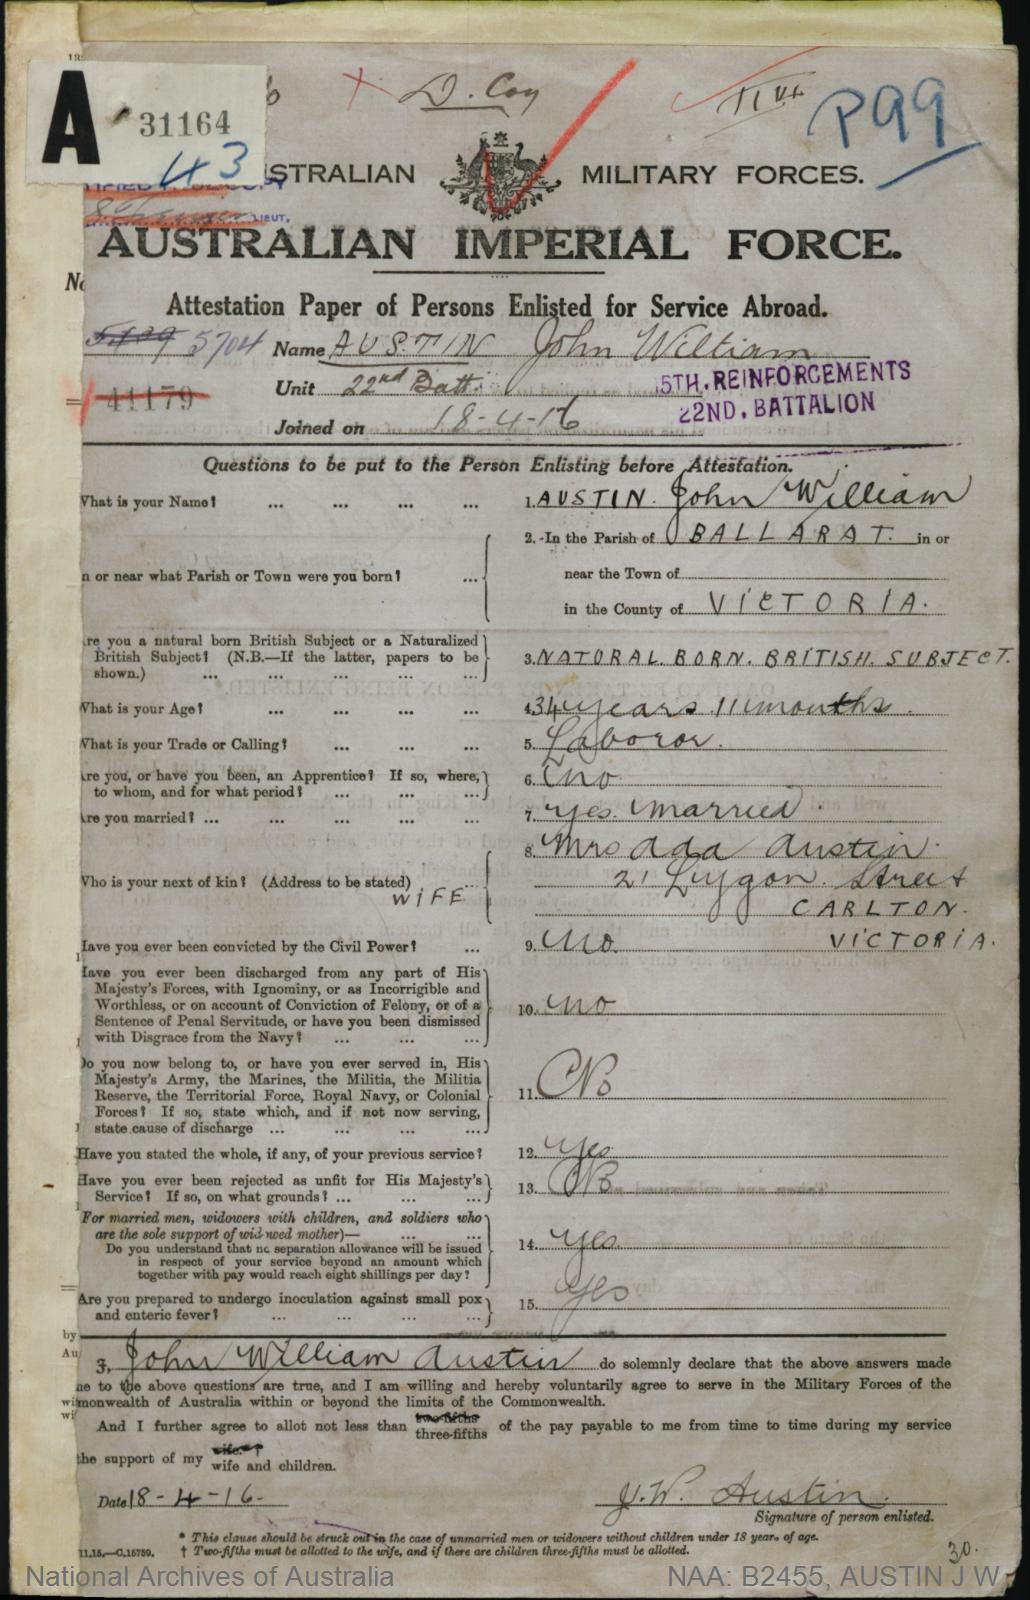 D. Coy
P99
A
31164
43
AUSTRALIAN MILITARY FORCES.
LIEUT.
AUSTRALIAN IMPERIAL FORCE.
No
Attestation Paper of Persons Enlisted for Service Abroad.
5704 Name AUSTIN John William
41179 Unit 22nd Batt. 15TH. REINFORCEMENTS
22ND. BATTALION
Joined on 18-4-16
Questions to be put to the Person Enlisting before Attestation.
What is your Name? ... ... ... ... 1. AUSTIN. John William
2. In the Parish of BALLARAT. in or
n or near what Parish or Town were you born? ... near the Town of
in the County of VICTORIA.
Are you a natural born British Subject or a Naturalized
British Subject? (N.B.—If the latter, papers to be 3. NATORAL. BORN. BRITISH. SUBJECT.
shown.) ... ... ... ...
What is your Age? ... ... ... ... 4. 34 years 11 months.
What is your Trade or Calling? ... ... ... 5. Laboror.
Are you, or have you been, an Apprentice? If so, where, 6. no
to whom, and for what period? ... ... ...
Are you married? ... ... ... ... 7. yes. married.
8. Mrs Ada Austin.
Who is your next of kin? (Address to be stated) ... 21 Lygon. Street
WIFE CARLTON.
Have you ever been convicted by the Civil Power? ... 9. No. VICTORIA.
Have you ever been discharged from any part of His
Majesty's Forces, with Ignominy, or as Incorrigible and
Worthless, or on account of Conviction of Felony, or of a 10. no
Sentence of Penal Servitude, or have you been dismissed
with Disgrace from the Navy? ... ... ...
Do you now belong to, or have you ever served in, His
Majesty's Army, the Marines, the Militia, the Militia
Reserve, the Territorial Force, Royal Navy, or Colonial 11. No
Forces? If so, state which, and if not now serving,
state cause of discharge ... ... ...
Have you stated the whole, if any, of your previous service? 12. Yes
Have you ever been rejected as unfit for His Majesty's 13. No
Service? If so, on what grounds? ... ... ...
For married men, widowers with children, and soldiers who
are the sole support of widowed mother)— ... ...
Do you understand that no separation allowance will be issued 14. Yes.
in respect of your service beyond an amount which
together with pay would reach eight shillings per day?
Are you prepared to undergo inoculation against small pox 15. Yes
and enteric fever? ... ... ... ...
I, John William Austin do solemnly declare that the above answers made
me to the above questions are true, and I am willing and hereby voluntarily agree to serve in the Military Forces of the
monwealth of Australia within or beyond the limits of the Commonwealth.
And I further agree to allot not less than two-fifths three-fifths of the pay payable to me from time to time during my service
the support of my wife.† wife and children.
Date 18-4-16. J.W. Austin.
Signature of person enlisted.
* This clause should be struck out in the case of unmarried men or widowers without children under 18 years of age.
11.15.—C.15759. † Two-fifths must be allotted to the wife, and if there are children three-fifths must be allotted.
30.
National Archives of Australia NAA: B2455, AUSTIN J W